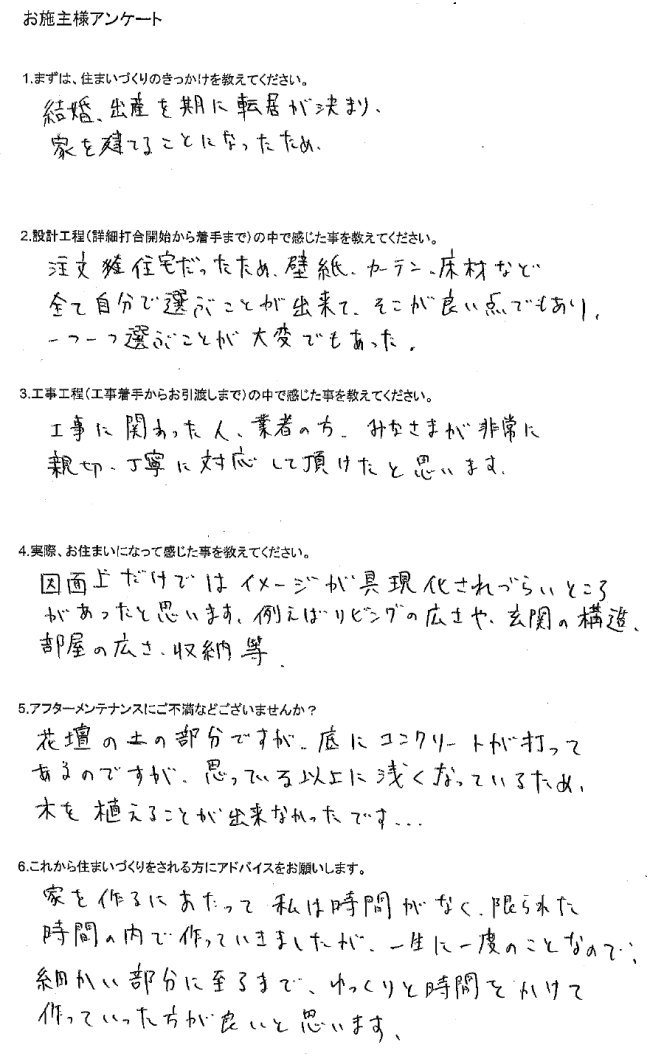 お施主様アンケート
1.まずは、住まいづくりのきっかけを教えてください。
結婚、出産を期に転居が決まり、
家を建てることになったため、
2.設計工程(詳細打合開始から着手まで)の中で感じた事を教えてください。
注文住宅だったため、壁紙、カーテン、床材など
全て自分で選ぶことが出来て、そこが良い点でもあり、
一つ一つ選ぶことが大変でもあった。
3.工事工程(工事着手からお引渡しまで)の中で感じた事を教えてください。
工事に関わった人、業者の方、みなさまが非常に
親切、丁寧に対応して頂けたと思います。
4.実際、お住まいになって感じた事を教えてください。
図面上だけではイメージが具現化されづらいところ
があったと思います、例えばリビングの広さや、玄関の構造、
部屋の広さ、収納等、
5.アフターメンテナンスにご不満などございませんか?
花壇の土の部分ですが、底にコンクリートが打って
あるのですが、思っている以上に浅くなっているため、
木を植えることが出来なかったです...
6.これから住まいづくりをされる方にアドバイスをお願いします。
家を作るにあたって私は時間がなく、限られた
時間の内で作っていきましたが、一生に一度のことなので、
細かい部分に至るまで、ゆっくりと時間をかけて
作っていった方が良いと思います、